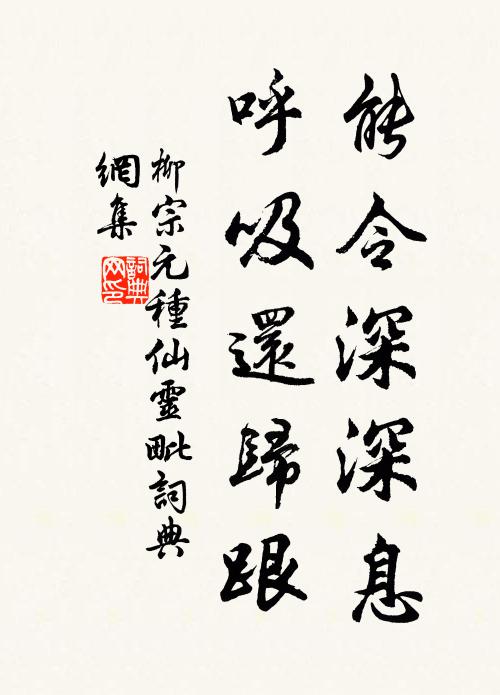 能令深深息
呼吸還歸跟
柳宗元種仙靈毗詞典
網集
詞典
网印